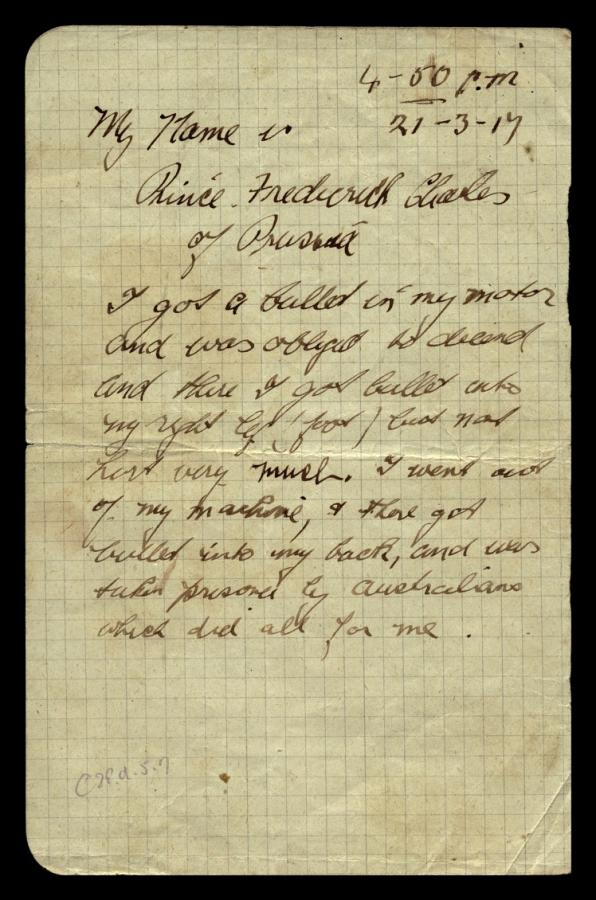 4-50 p.m
21-3-17
My Name is
Prince Frederick Charles
of Prussia
I got a bullet in my motor
and was obliged to decend
and there I got bullet into
my right leg (foot) but not
hert very much. I went out
of my machine, & there got
bullet into my back, and was
taken prisoner by australians
which did all for me.